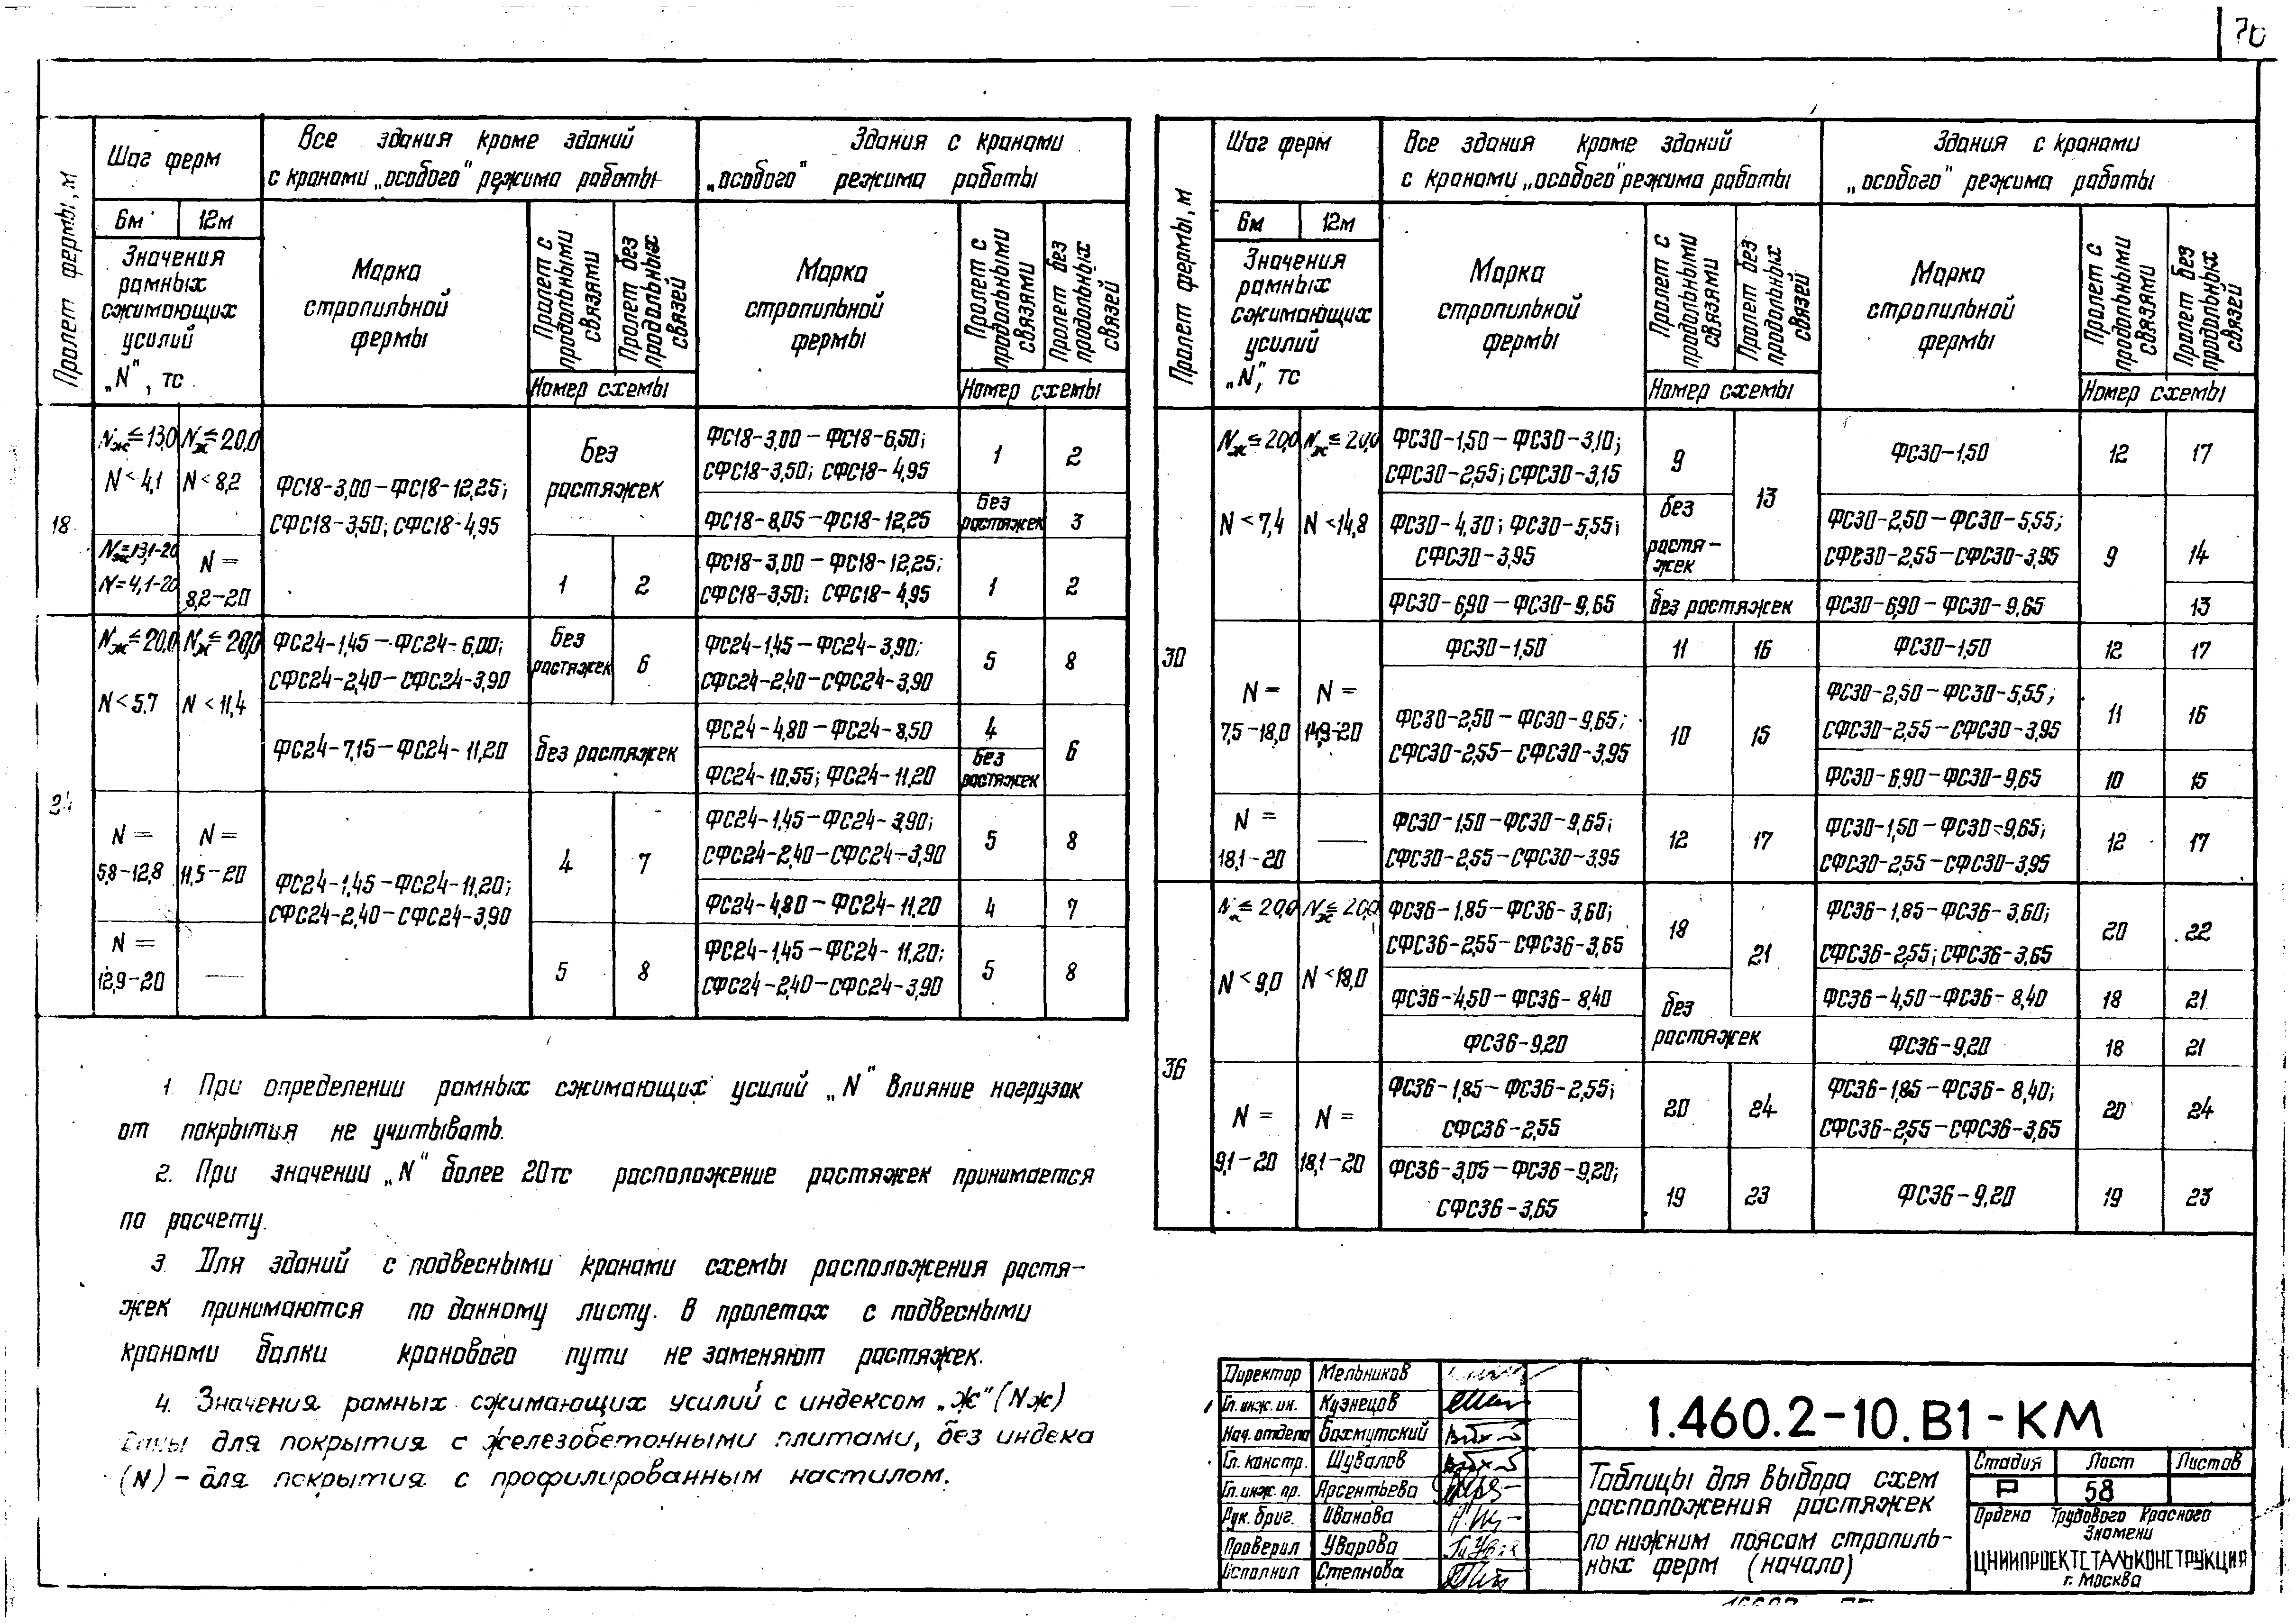 70
Пролет фермы, м
Шаг ферм
Все здания кроме зданий
с кранами „особого" режима работы
Здания с кранами
„особого" режима работы
6м 12м
Значения
рамных
сжимающих
усилий
„N", тс
Марка
стропильной
фермы
Пролет с
продольными
связями
Пролет без
продольных
связей
Номер схемы
Марка
стропильной
фермы
Пролет с
продольными
связями
Пролет без
продольных
связей
Номер схемы
18
Nж ≤ 13,0 Nж ≤ 20,0
N < 4,1 N < 8,2
ФС18-3,00 — ФС18-12,25;
СФС18-3,50; СФС18-4,95
Без
растяжек
ФС18-3,00 — ФС18-6,50;
СФС18-3,50; СФС18-4,95
1 2
ФС18-8,05 — ФС18-12,25
без
растяжек
3
Nж=13,1-20
N=4,1-20
N =
8,2-20
1 2
ФС18-3,00 — ФС18-12,25;
СФС18-3,50; СФС18-4,95
1 2
24
Nж ≤ 20,0 Nж ≤ 20,0
N < 5,7 N < 11,4
ФС24-1,45 — ФС24-6,00;
СФС24-2,40 — СФС24-3,90
без
растяжек
6
ФС24-1,45 — ФС24-3,90;
СФС24-2,40 — СФС24-3,90
5 8
ФС24-7,15 — ФС24-11,20
без растяжек
ФС24-4,80 — ФС24-8,50
4
6
ФС24-10,55; ФС24-11,20
без
растяжек
N = N =
5,8-12,8 11,5-20
ФС24-1,45 — ФС24-11,20;
СФС24-2,40 — СФС24-3,90
4 7
ФС24-1,45 — ФС24-3,90;
СФС24-2,40 — СФС24-3,90
5 8
ФС24-4,80 — ФС24-11,20
4 7
N =
12,9-20 —
5 8
ФС24-1,45 — ФС24-11,20;
СФС24-2,40 — СФС24-3,90
5 8
Пролет фермы, м
Шаг ферм
Все здания кроме зданий
с кранами „особого" режима работы
Здания с кранами
„особого" режима работы
6м 12м
Значения
рамных
сжимающих
усилий
„N", тс
Марка
стропильной
фермы
Пролет с
продольными
связями
Пролет без
продольных
связей
Номер схемы
Марка
стропильной
фермы
Пролет с
продольными
связями
Пролет без
продольных
связей
Номер схемы
30
Nж ≤ 20,0 Nж ≤ 20,0
N < 7,4 N < 14,8
ФС30-1,50 — ФС30-3,10;
СФС30-2,55; СФС30-3,15
9
13
ФС30-1,50
12 17
ФС30-4,30; ФС30-5,55;
СФС30-3,95
без
растя-
жек
ФС30-2,50 — ФС30-5,55;
СФС30-2,55 — СФС30-3,95
9 14
ФС30-6,90 — ФС30-9,65
без растяжек
ФС30-6,90 — ФС30-9,65
13
N = N =
7,5-18,0 14,9-20
ФС30-1,50
11 16
ФС30-1,50
12 17
ФС30-2,50 — ФС30-9,65;
СФС30-2,55 — СФС30-3,95
10 15
ФС30-2,50 — ФС30-5,55;
СФС30-2,55 — СФС30-3,95
11 16
ФС30-6,90 — ФС30-9,65
10 15
N =
18,1-20 —
ФС30-1,50 — ФС30-9,65;
СФС30-2,55 — СФС30-3,95
12 17
ФС30-1,50 — ФС30-9,65;
СФС30-2,55 — СФС30-3,95
12 17
36
≤ 20,0 Nж ≤ 20,0
N < 9,0 N < 18,0
ФС36-1,85 — ФС36-3,60;
СФС36-2,55 — СФС36-3,65
18
21
ФС36-1,85 — ФС36-3,60;
СФС36-2,55; СФС36-3,65
20 22
ФС36-4,50 — ФС36-8,40
без
растяжек
ФС36-4,50 — ФС36-8,40
18 21
ФС36-9,20
ФС36-9,20
18 21
N = N =
9,1-20 18,1-20
ФС36-1,85 — ФС36-2,55;
СФС36-2,55
20 24
ФС36-1,85 — ФС36-8,40;
СФС36-2,55 — СФС36-3,65
20 24
ФС36-3,05 — ФС36-9,20;
СФС36-3,65
19 23
ФС36-9,20
19 23
1 При определении рамных сжимающих усилий „N" влияние нагрузок
от покрытия не учитывать.
2. При значении „N" более 20тс расположение растяжек принимается
по расчету.
3 Для зданий с подвесными кранами схемы расположения растя-
жек принимаются по данному листу. В пролетах с подвесными
кранами балки кранового пути не заменяют растяжек.
4. Значения рамных сжимающих усилий с индексом „Ж" (Nж)
даны для покрытия с железобетонными плитами, без индека
(N) — для покрытия с профилированным настилом.
Директор Мельников
Гл. инж. ин. Кузнецов
Нач. отдела Бахмутский
Гл. констр. Шувалов
Гл. инж. пр. Арсентьева
Рук. бриг. Иванова
Проверил Уварова
Исполнил Степнова
1.460.2-10.В1-КМ
Таблицы для выбора схем
расположения растяжек
по нижним поясам стропиль-
ных ферм (начало)
Стадия Лист Листов
Р 58
Ордена Трудового Красного
Знамени
ЦНИИПРОЕКТСТАЛЬКОНСТРУКЦИЯ
г. Москва